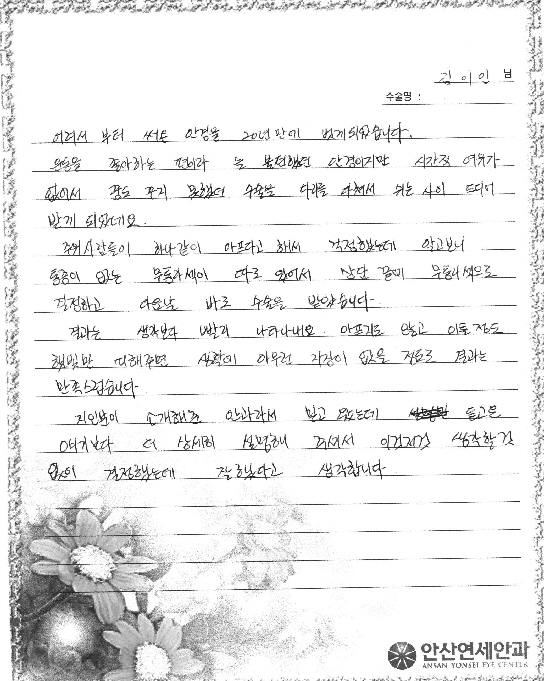 김이인 님
수술명 :
어려서 부터 써온 안경을 20년만에 벗게되었습니다.
운동을 좋아하는 편이라 늘 불편했던 안경이지만 시간적 여유가
없어서 꿈도 꾸지 못했던 수술을 다리를 다쳐서 쉬는 사이 드디어
받게 되었네요.
주위사람들이 하나같이 아프다고 해서 걱정했는데 알고보니
통증이 없는 무통라섹이 따로 있어서 상담 끝에 무통라섹으로
결정하고 다음날 바로 수술을 받았습니다.
결과는 생각보다 빨리 나타나네요. 아프지도 않고 이틀정도
햇빛만 피해주면 생활에 아무런 지장이 없을 정도로 결과는
만족스럽습니다.
지인분이 소개해준 안과라서 믿고 왔는데 듣고온
얘기보다 더 상세히 설명해 주셔서 이것저것 생각할것
없이 결정했는데 잘했다고 생각합니다
안산연세안과
ANSAN YONSEI EYE CENTER